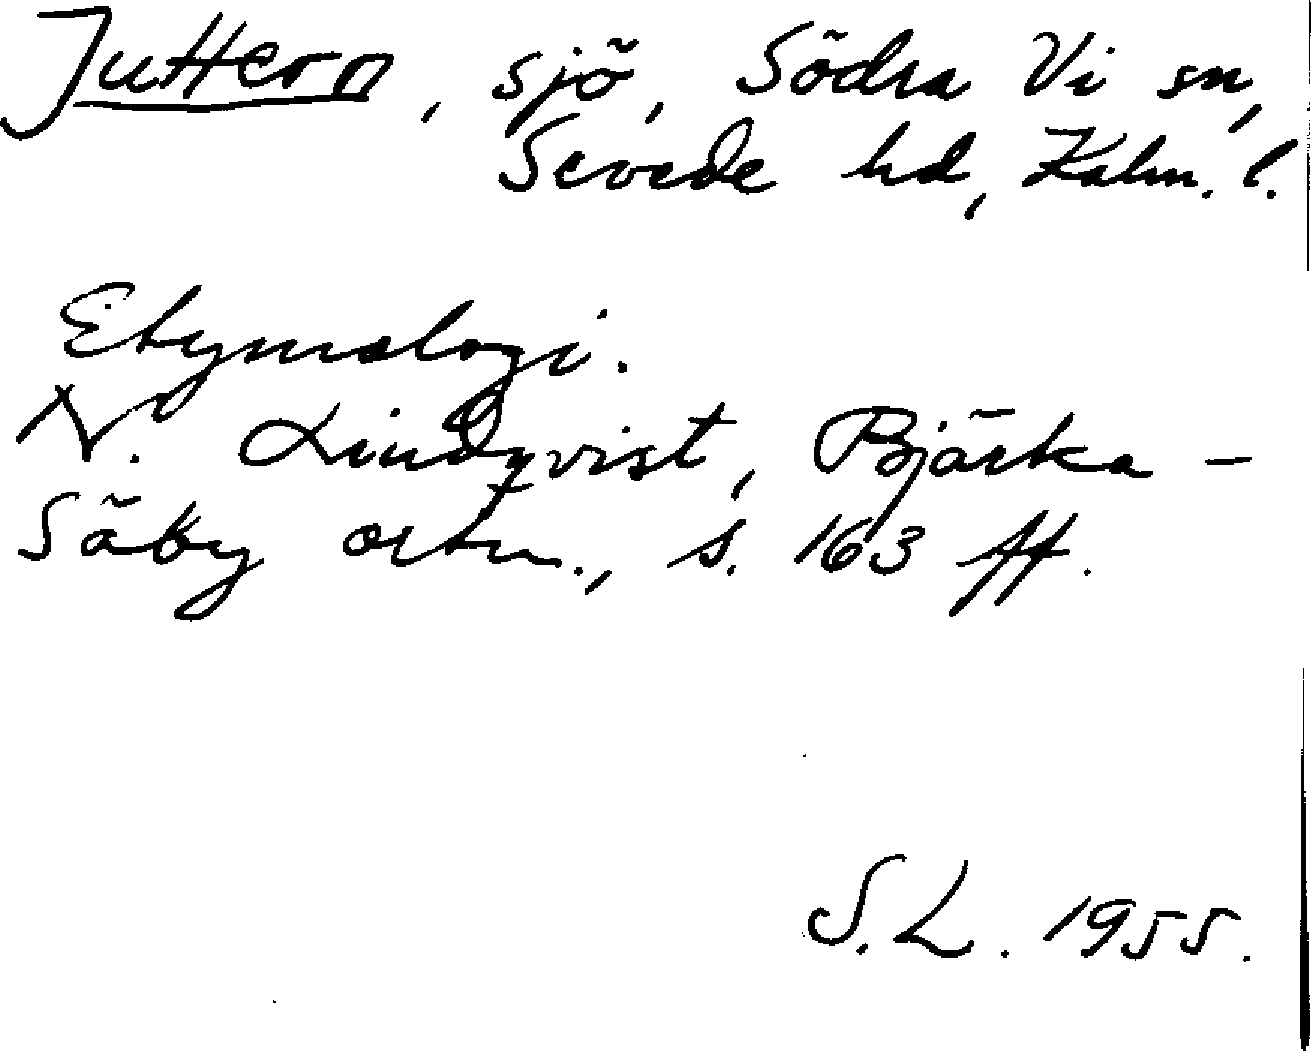 Juttern, sjö, Södra Vi sn,
Sevede hd, Kalm. l.
Etymologi.
N. Lindqvist, Bjärka-
Säby ortn., s. 163 ff.
S. L. 1955.